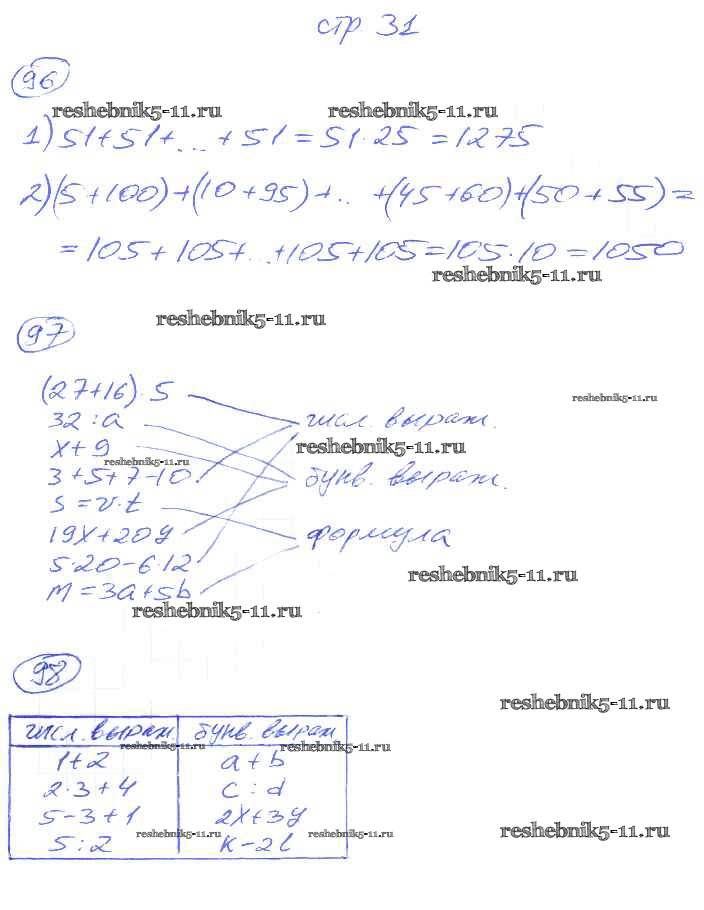 стр 31
96
reshebnik5-11.ru reshebnik5-11.ru
1) 51+51+...+51=51·25=1275
2)(5+100)+(10+95)+..+(45+60)+(50+55)=
=105+105+..+105+105=105·10=1050
reshebnik5-11.ru
reshebnik5-11.ru
97
(27+16)·5
reshebnik5-11.ru
32:a числ. выраж.
x+9 reshebnik5-11.ru
reshebnik5-11.ru
3+5+7-10 букв. выраж.
S=v·t
19x+20y формула
5·20-6·12
reshebnik5-11.ru
M=3a+5b
reshebnik5-11.ru
98
reshebnik5-11.ru
числ. выраж. букв. выраж
reshebnik5-11.ru reshebnik5-11.ru
1+2 a+b
2·3+4 c:d
5-3+1 2x+3y
reshebnik5-11.ru reshebnik5-11.ru reshebnik5-11.ru
5:2 k-2l